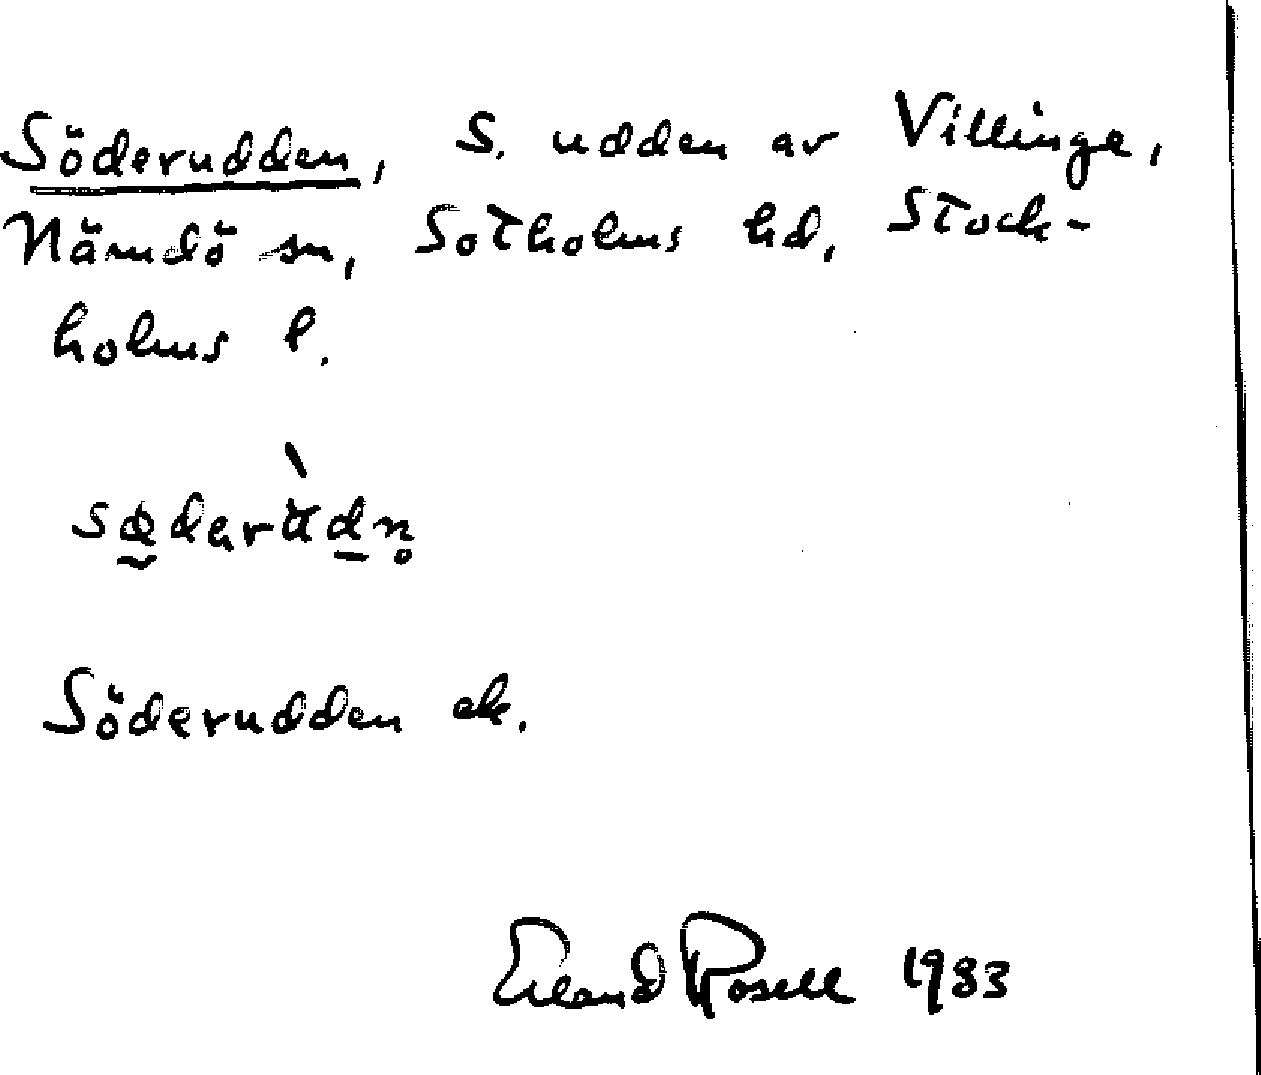 Söderudden, S. udden av Villinge,
Nämdö sn, Sotholms hd, Stock-
holms l.
Söderudden ek.
Erland Rosell 1983